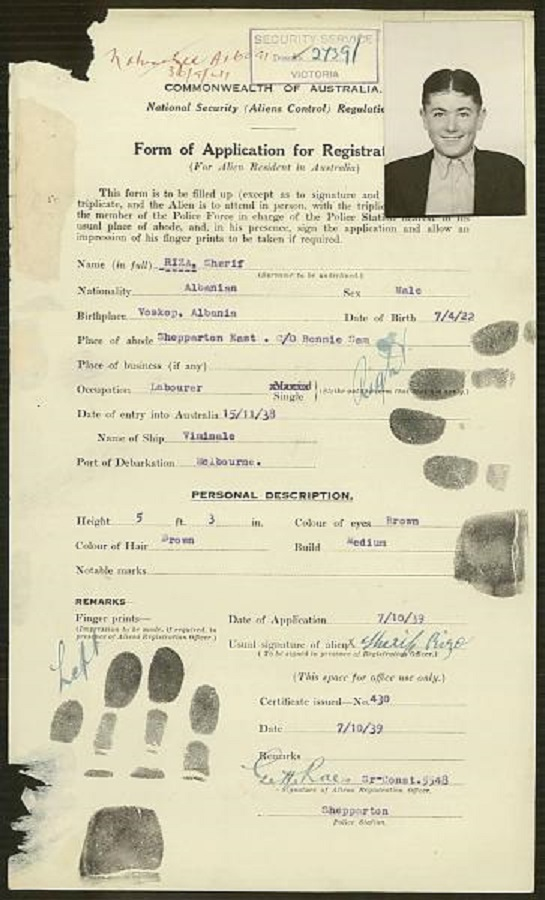 SECURITY SERVICE
27391
VICTORIA
COMMONWEALTH OF AUSTRALIA.
National Security (Aliens Control) Regulatio
Form of Application for Registrat
(For Alien Resident in Australia)
This form is to be filled up (except as to signature and
triplicate, and the Alien is to attend in person, with the triplic
the member of the Police Force in charge of the Police Station nearest to his
usual place of abode, and, in his presence, sign the application and allow an
impression of his finger prints to be taken if required.
Name (in full) RIZA, Sherif
(Surname to be underlined.)
Nationality Albanian Sex Male
Birthplace Voskop, Albania Date of Birth 7/4/22
Place of abode Shepparton East . C/O Bonnie Sam
Place of business (if any)
Right
Occupation Labourer Married
Single
Date of entry into Australia 15/11/38
Name of Ship Viminale
Port of Debarkation Melbourne.
PERSONAL DESCRIPTION.
Height 5 ft. 3 in. Colour of eyes Brown
Colour of Hair Brown Build Medium
Notable marks
REMARKS
Finger prints— Date of Application 7/10/39
(Impression to be made, if required, in
presence of Aliens Registration Officer.)
Usual signature of alien X Sherif Rizo
(To be signed in presence of Registration Officer.)
Left
(This space for office use only.)
Certificate issued—No. 430
Date 7/10/39
Remarks
Sr-Const. 5548
Signature of Aliens Registration Officer.
Shepparton
Police Station.